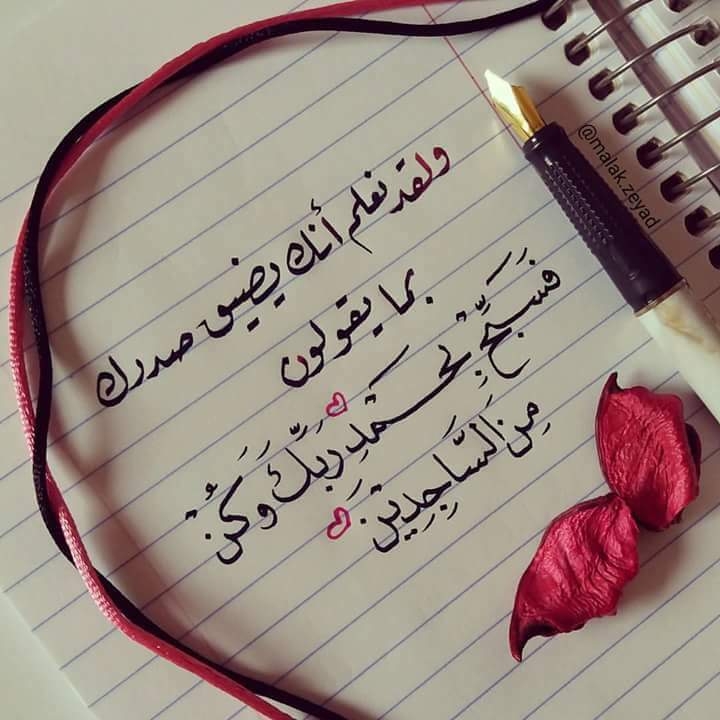 ولقد نعلم أنك يضيق صدرك
بما يقولون
فَسَبِّحْ بِحَمْدِ رَبِّكَ وَكُنْ
مِنَ السَّاجِدِينَ
@malak.zeyad